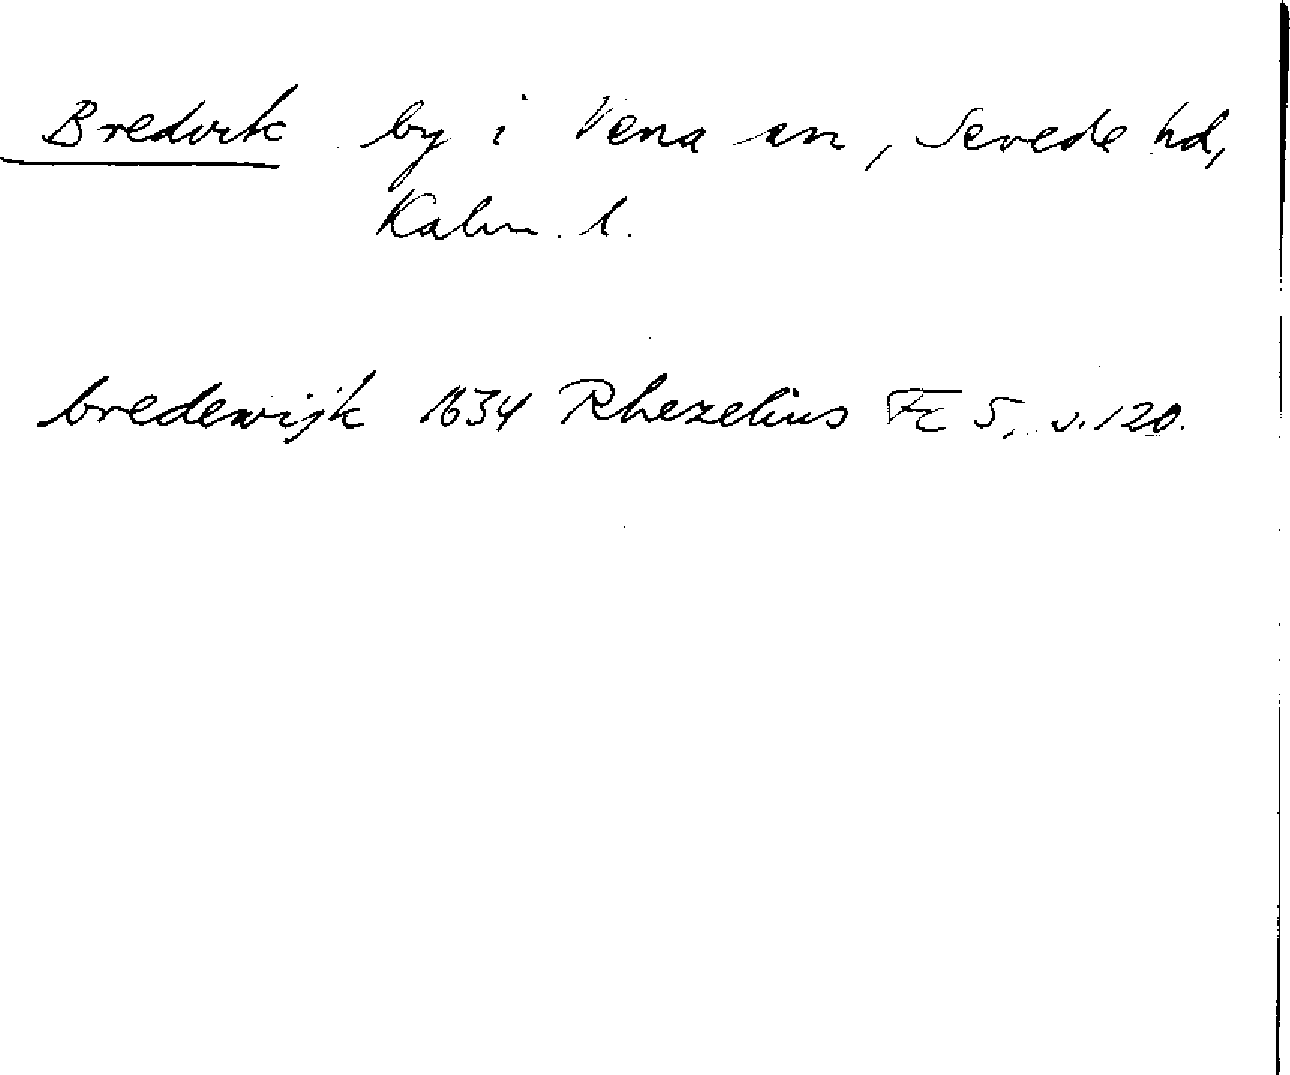 Bredvik by i Vena sn, Sevede hd,
Kalm. l.
bredewijk 1634 Rhezelius Fc 5, s. 120.